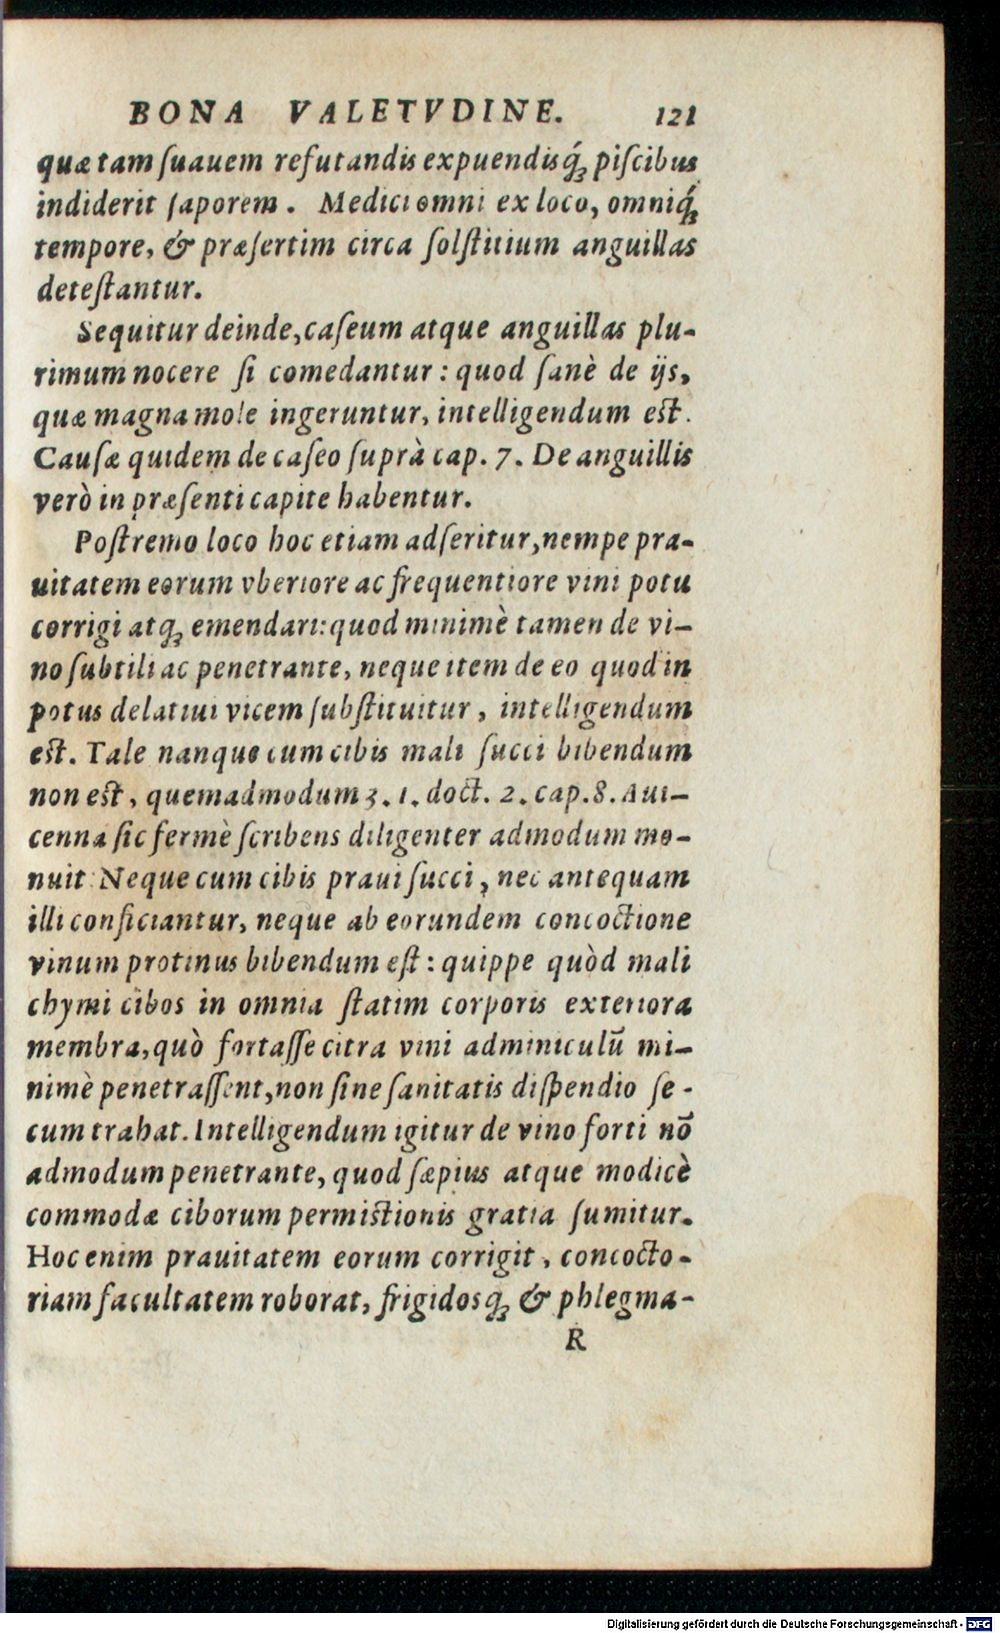 BONA VALETVDINE. 121
quæ tam ſuauem refutandis expuendisq́ꝫ piſcibus
indiderit ſaporem. Medici omni ex loco, omniq́ꝫ
tempore, & præſertim circa ſolſtitium anguillas
deteſtantur.
Sequitur deinde, caſeum atque anguillas plu-
rimum nocere ſi comedantur: quod ſanè de ijs,
quæ magna mole ingeruntur, intelligendum est.
Cauſæ quidem de caſeo ſuprà cap. 7. De anguillis
verò in præſenti capite habentur.
Poſtremo loco hoc etiam adſeritur, nempe pra-
uitatem eorum vberiore ac frequentiore vini potu
corrigi atqꝫ emendari: quod minimè tamen de vi-
no ſubtili ac penetrante, neque item de eo quod in
potus delatiui vicem ſubſtituitur, intelligendum
est. Tale nanque cum cibis mali ſucci bibendum
non est, quemadmodum 3. 1. doct. 2. cap. 8. Aui-
cenna ſic fermè ſcribens diligenter admodum mo-
nuit: Neque cum cibis praui ſucci, nec antequam
illi conficiantur, neque ab eorundem concoctione
vinum protinus bibendum eſt: quippe quòd mali
chymi cibos in omnia ſtatim corporis exteriora
membra, quò fortaſſe citra vini adminiculū mi-
nimè penetraſſent, non ſine ſanitatis diſpendio ſe-
cum trahat. Intelligendum igitur de vino forti nō
admodum penetrante, quod ſæpius atque modicè
commodæ ciborum permistionis gratia ſumitur.
Hoc enim prauitatem eorum corrigit, concocto-
riam facultatem roborat, frigidosqꝫ & phlegma-
R
Digitalisierung gefördert durch die Deutsche Forschungsgemeinschaft - DFG